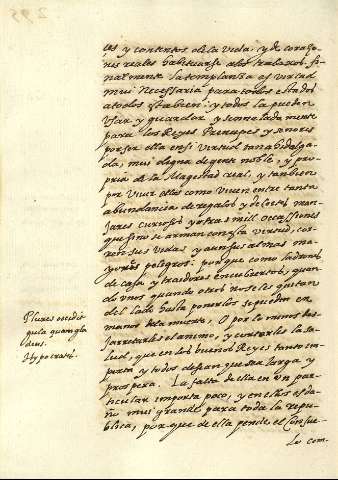 295
tes y contentos de la vida, y de coraço
nes reales habituarse a los trabaxos. fi
nalmente la templanza es virtud
mui necessaria para todos estados
a todos esta bien: y todos la pueden
usar y guardar, y señaladamente
para los Reyes Principes y señores
por ser ella en si virtud tan ahidalga
da, mui digna de gente noble, y pro
pria de la Magestad real, y tambien
por vivir ellos como viven entre tanta
abundancia de regalos y deleites man
jares curiosos y otras mill occasiones
que si no se arman con esta virtud, cor
ren sus vidas y aun sus almas ma
yores peligros: porque como ladrones
de casa y traidores encubiertos, quan
do unos quando otros no se les quitan
del lado hasta ponerlos en
manos de la muerte, O por lo menos des
jarretarles el animo, y cortarles la sa
lud, que en los buenos Reyes tanto im
porta y todos desean que sea larga y
prospera. La falta de ella en un par
ticular importa poco, y en ellos es da
ño mui grande para toda la repu
blica, porque de ella pende el Consue
lo com
Plures occidit
gula quam gla
dius.
Hypocrates